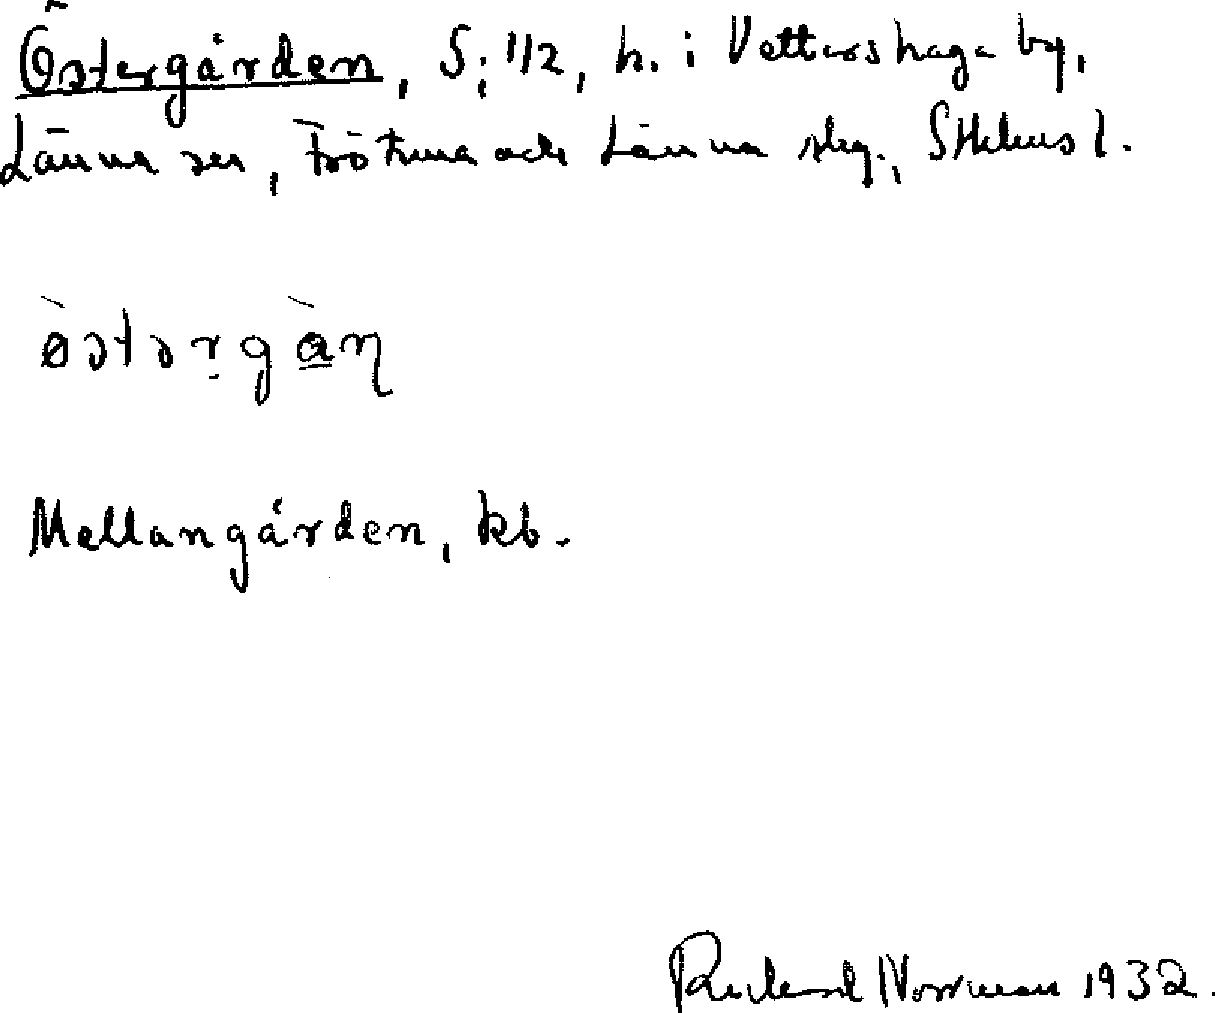 Östergården, S; 1/2, h. i Vettershaga by,
Länna sn, Frötuna och Länna skg., Sthlms l.
östərgån
Mellangården, kb.
Rickard Norrman 1932.